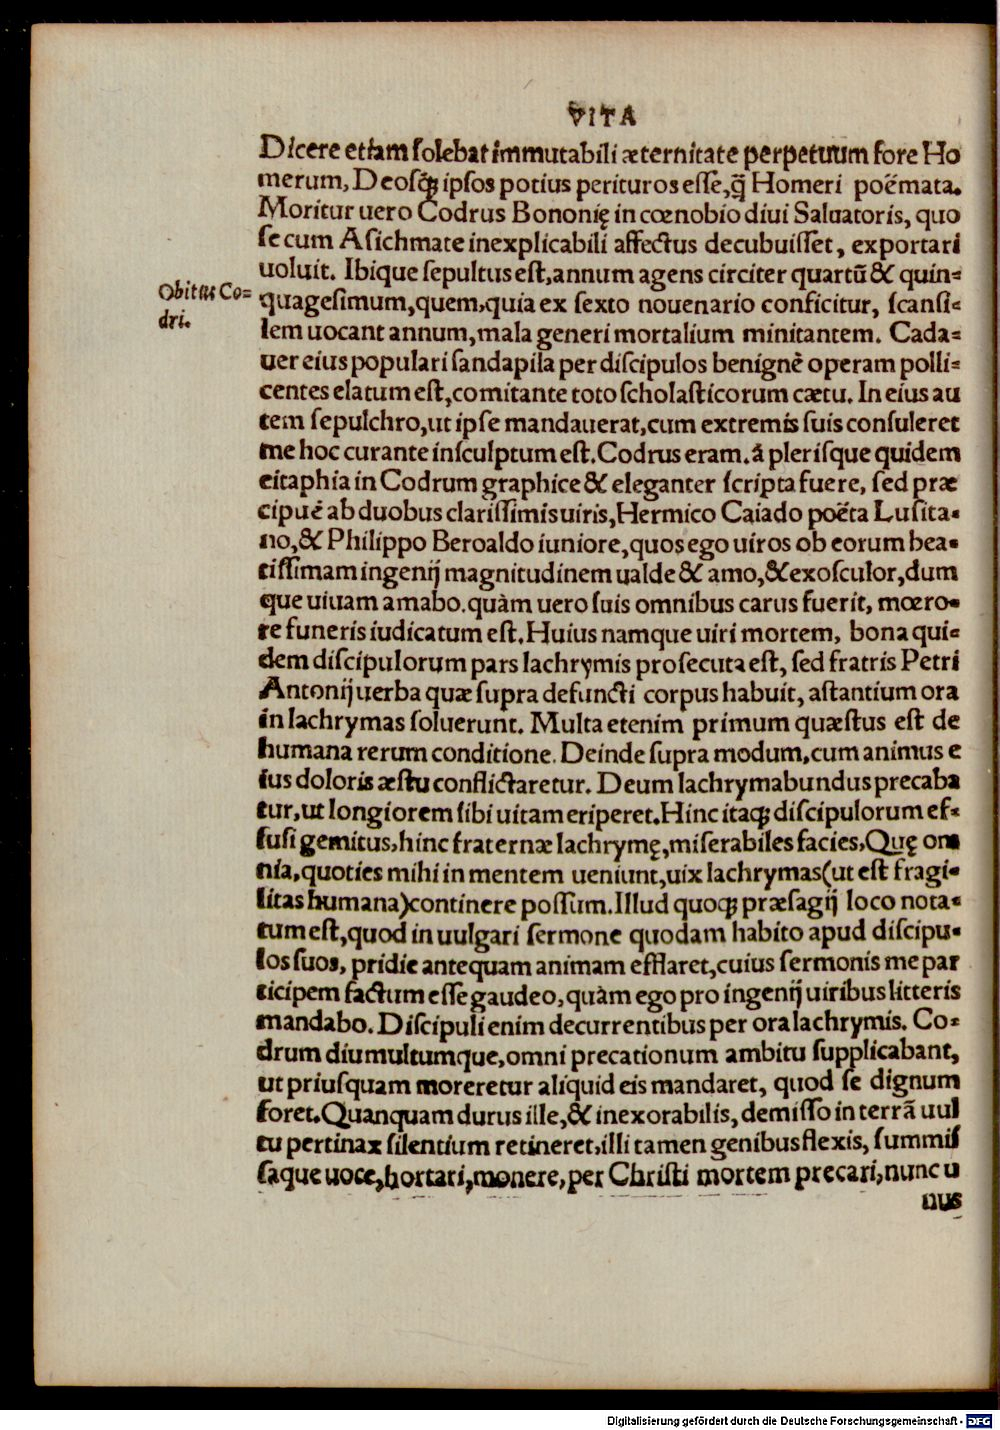 VITA
Dicere etiam solebat immutabili æternitate perpetuum fore Ho
merum, Deosq; ipsos potius perituros esse, q̃ Homeri poëmata.
Moritur uero Codrus Bononię in cœnobio diui Saluatoris, quo
se cum Asichmate inexplicabili affectus decubuisset, exportari
uoluit. Ibique sepultus est, annum agens circiter quartũ & quin-
Obitus Co-
dri.
quagesimum, quem, quia ex sexto nouenario conficitur, scansi-
lem uocant annum, mala generi mortalium minitantem. Cada-
uer eius populari sandapila per discipulos benignè operam polli-
centes elatum est, comitante toto scholasticorum cætu. In eius au
tem sepulchro, ut ipse mandauerat, cum extremis suis consuleret
me hoc curante insculptum est. Codrus eram. à plerisque quidem
eitaphia in Codrum graphice & eleganter scripta fuere, sed præ
cipuè ab duobus clarissimis uiris, Hermico Caiado poëta Lusita-
no, & Philippo Beroaldo iuniore, quos ego uiros ob eorum bea-
tissimam ingenij magnitudinem ualde & amo, & exosculor, dum
que uiuam amabo. quàm uero suis omnibus carus fuerit, mœro-
re funeris iudicatum est. Huius namque uiri mortem, bona qui-
dem discipulorum pars lachrymis prosecuta est, sed fratris Petri
Antonij uerba quæ supra defuncti corpus habuit, astantium ora
in lachrymas soluerunt. Multa etenim primum quæstus est de
humana rerum conditione. Deinde supra modum, cum animus e
ius doloris æstu conflictaretur. Deum lachrymabundus precaba
tur, ut longiorem sibi uitam eriperet. Hinc itaq; discipulorum ef-
fusi gemitus, hinc fraternæ lachrymę, miserabiles facies, Quę om
nia, quoties mihi in mentem ueniunt, uix lachrymas (ut est fragi-
litas humana) continere possum. Illud quoq; præsagij loco nota-
tum est, quod in uulgari sermone quodam habito apud discipu-
los suos, pridie antequam animam efflaret, cuius sermonis me par
ticipem factum esse gaudeo, quàm ego pro ingenij uiribus litteris
mandabo. Discipuli enim decurrentibus per ora lachrymis. Co-
drum diu multumque, omni precationum ambitu supplicabant,
ut priusquam moreretur aliquid eis mandaret, quod se dignum
foret. Quanquam durus ille, & inexorabilis, demisso in terrã uul
tu pertinax silentium retineret, illi tamen genibus flexis, summis
saque uoce, hortari, monere, per Christi mortem precari, nunc u
nus
Digitalisierung gefördert durch die Deutsche Forschungsgemeinschaft - DFG